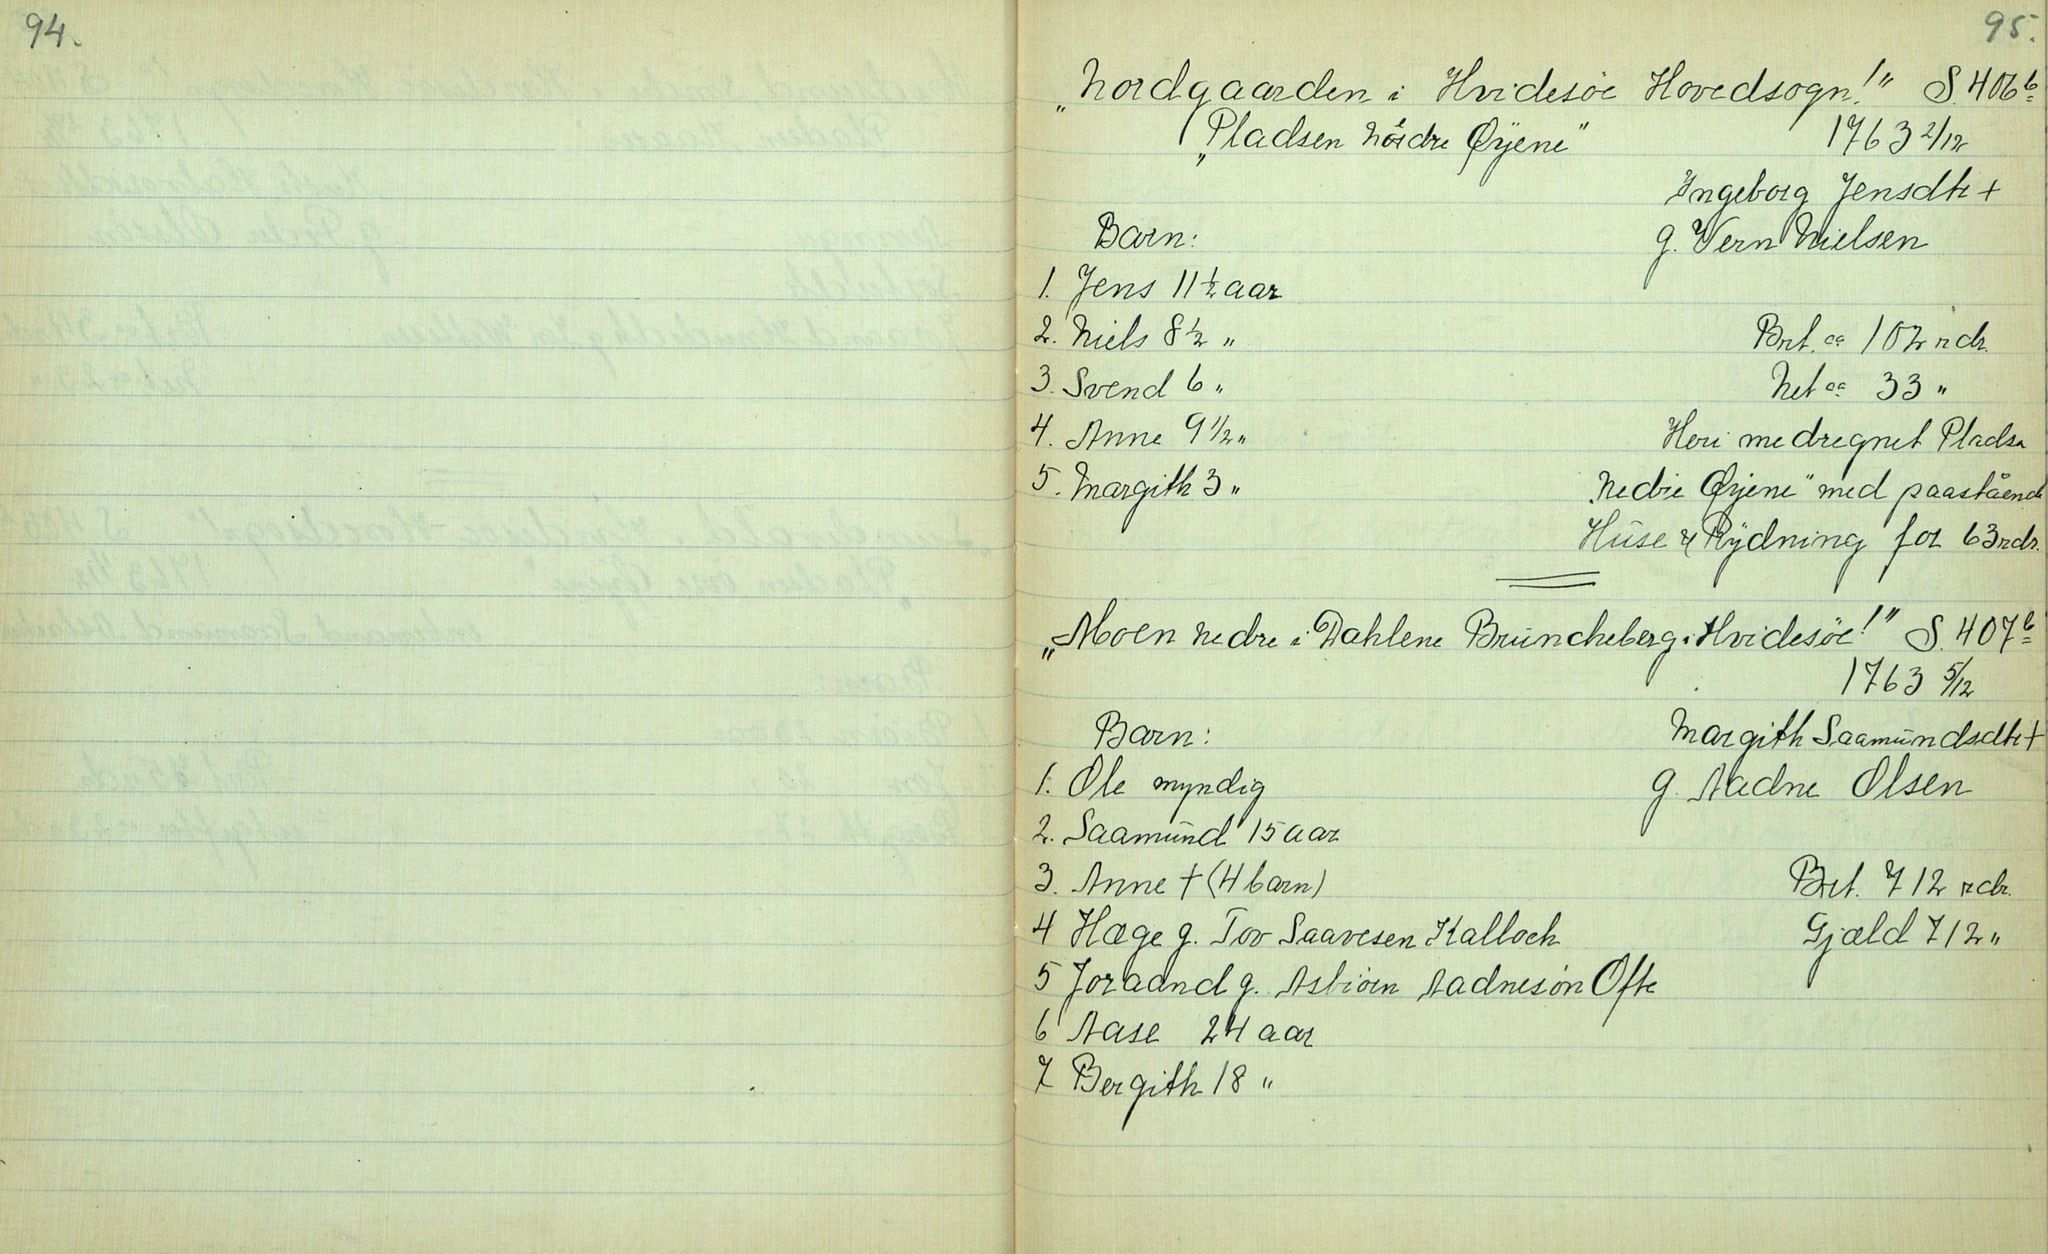 94.
95.
„Nordgaarden i Hvidesøe Hovedsogn!" S. 406b
„Pladsen Nørdre Øyene" 1763 2/12
Ingeborg Jensdtr +
Barn: g. Vern Nielsen
1. Jens 11 1/2 aar
2. Niels 8 1/2 „ Brt. ca 102 rdr.
3. Svend 6 „ Net ca 33 „
4. Anne 9 1/2 „ Heri medregnet Pladsn
5. Margith 3 „ „Nedre Øyene" med paastående
Huse & Rydning for 63 rdr.
„Moen nedre i Dahlene Bruncheberg i Hvidesøe!" S. 407b
1763 5/12
Barn: Margith Saamundsdtr +
1. Ole myndig g. Aadne Olsen
2. Saamund 15 aar
3. Anne + (4 barn) Brt. 712 rdr.
4 Hæge g. Tov Saavesen Kalloch Gjæld 712 „
5 Joraand g. Asbiøen Aadnesøn Ofte
6 Aase 24 aar
7 Bergith 18 „